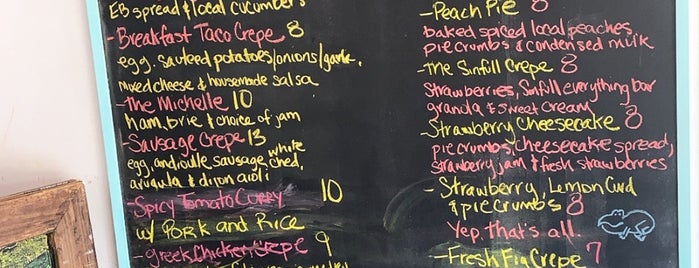 EB spread & local cucumbers
-Breakfast Taco Crepe 8
egg, sauteed potatoes/onions/garlic,
mixed cheese & housemade salsa
-The Michelle 10
ham, brie & choice of jam
-Sausage Crepe 13
egg, andouille sausage, white ched,
arugula & dijon aioli
-Spicy Tomato Curry 10
w/ Pork and Rice
-Greek Chicken Crepe 9
-Peach Pie 8
baked spiced local peaches,
pie crumbs & condensed milk
-The Sinfull Crepe 8
Strawberries, Sinfull everything bar
granola & sweet cream
-Strawberry Cheesecake 8
pie crumbs, cheesecake spread,
strawberry jam & fresh strawberries
-Strawberry, Lemon Curd
& pie crumbs 8
Yep, that's all.
-Fresh Fig Crepe 7